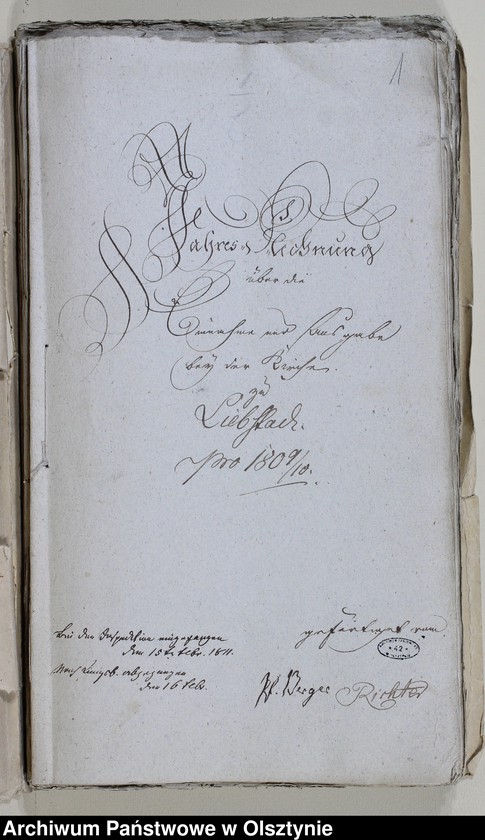 1
Jahres Rechnung
über die
Einnahme und Ausgabe
bey der Kirche
zu
Liebstadt.
pro 1809/10.
Bei der Inspection eingegangen
den 15t. Febr. 1811.
Nach Königsb. abgegangen
den 16 Febr.
gefertiget vom
42
Pf. Berger Richter
Archiwum Państwowe w Olsztynie